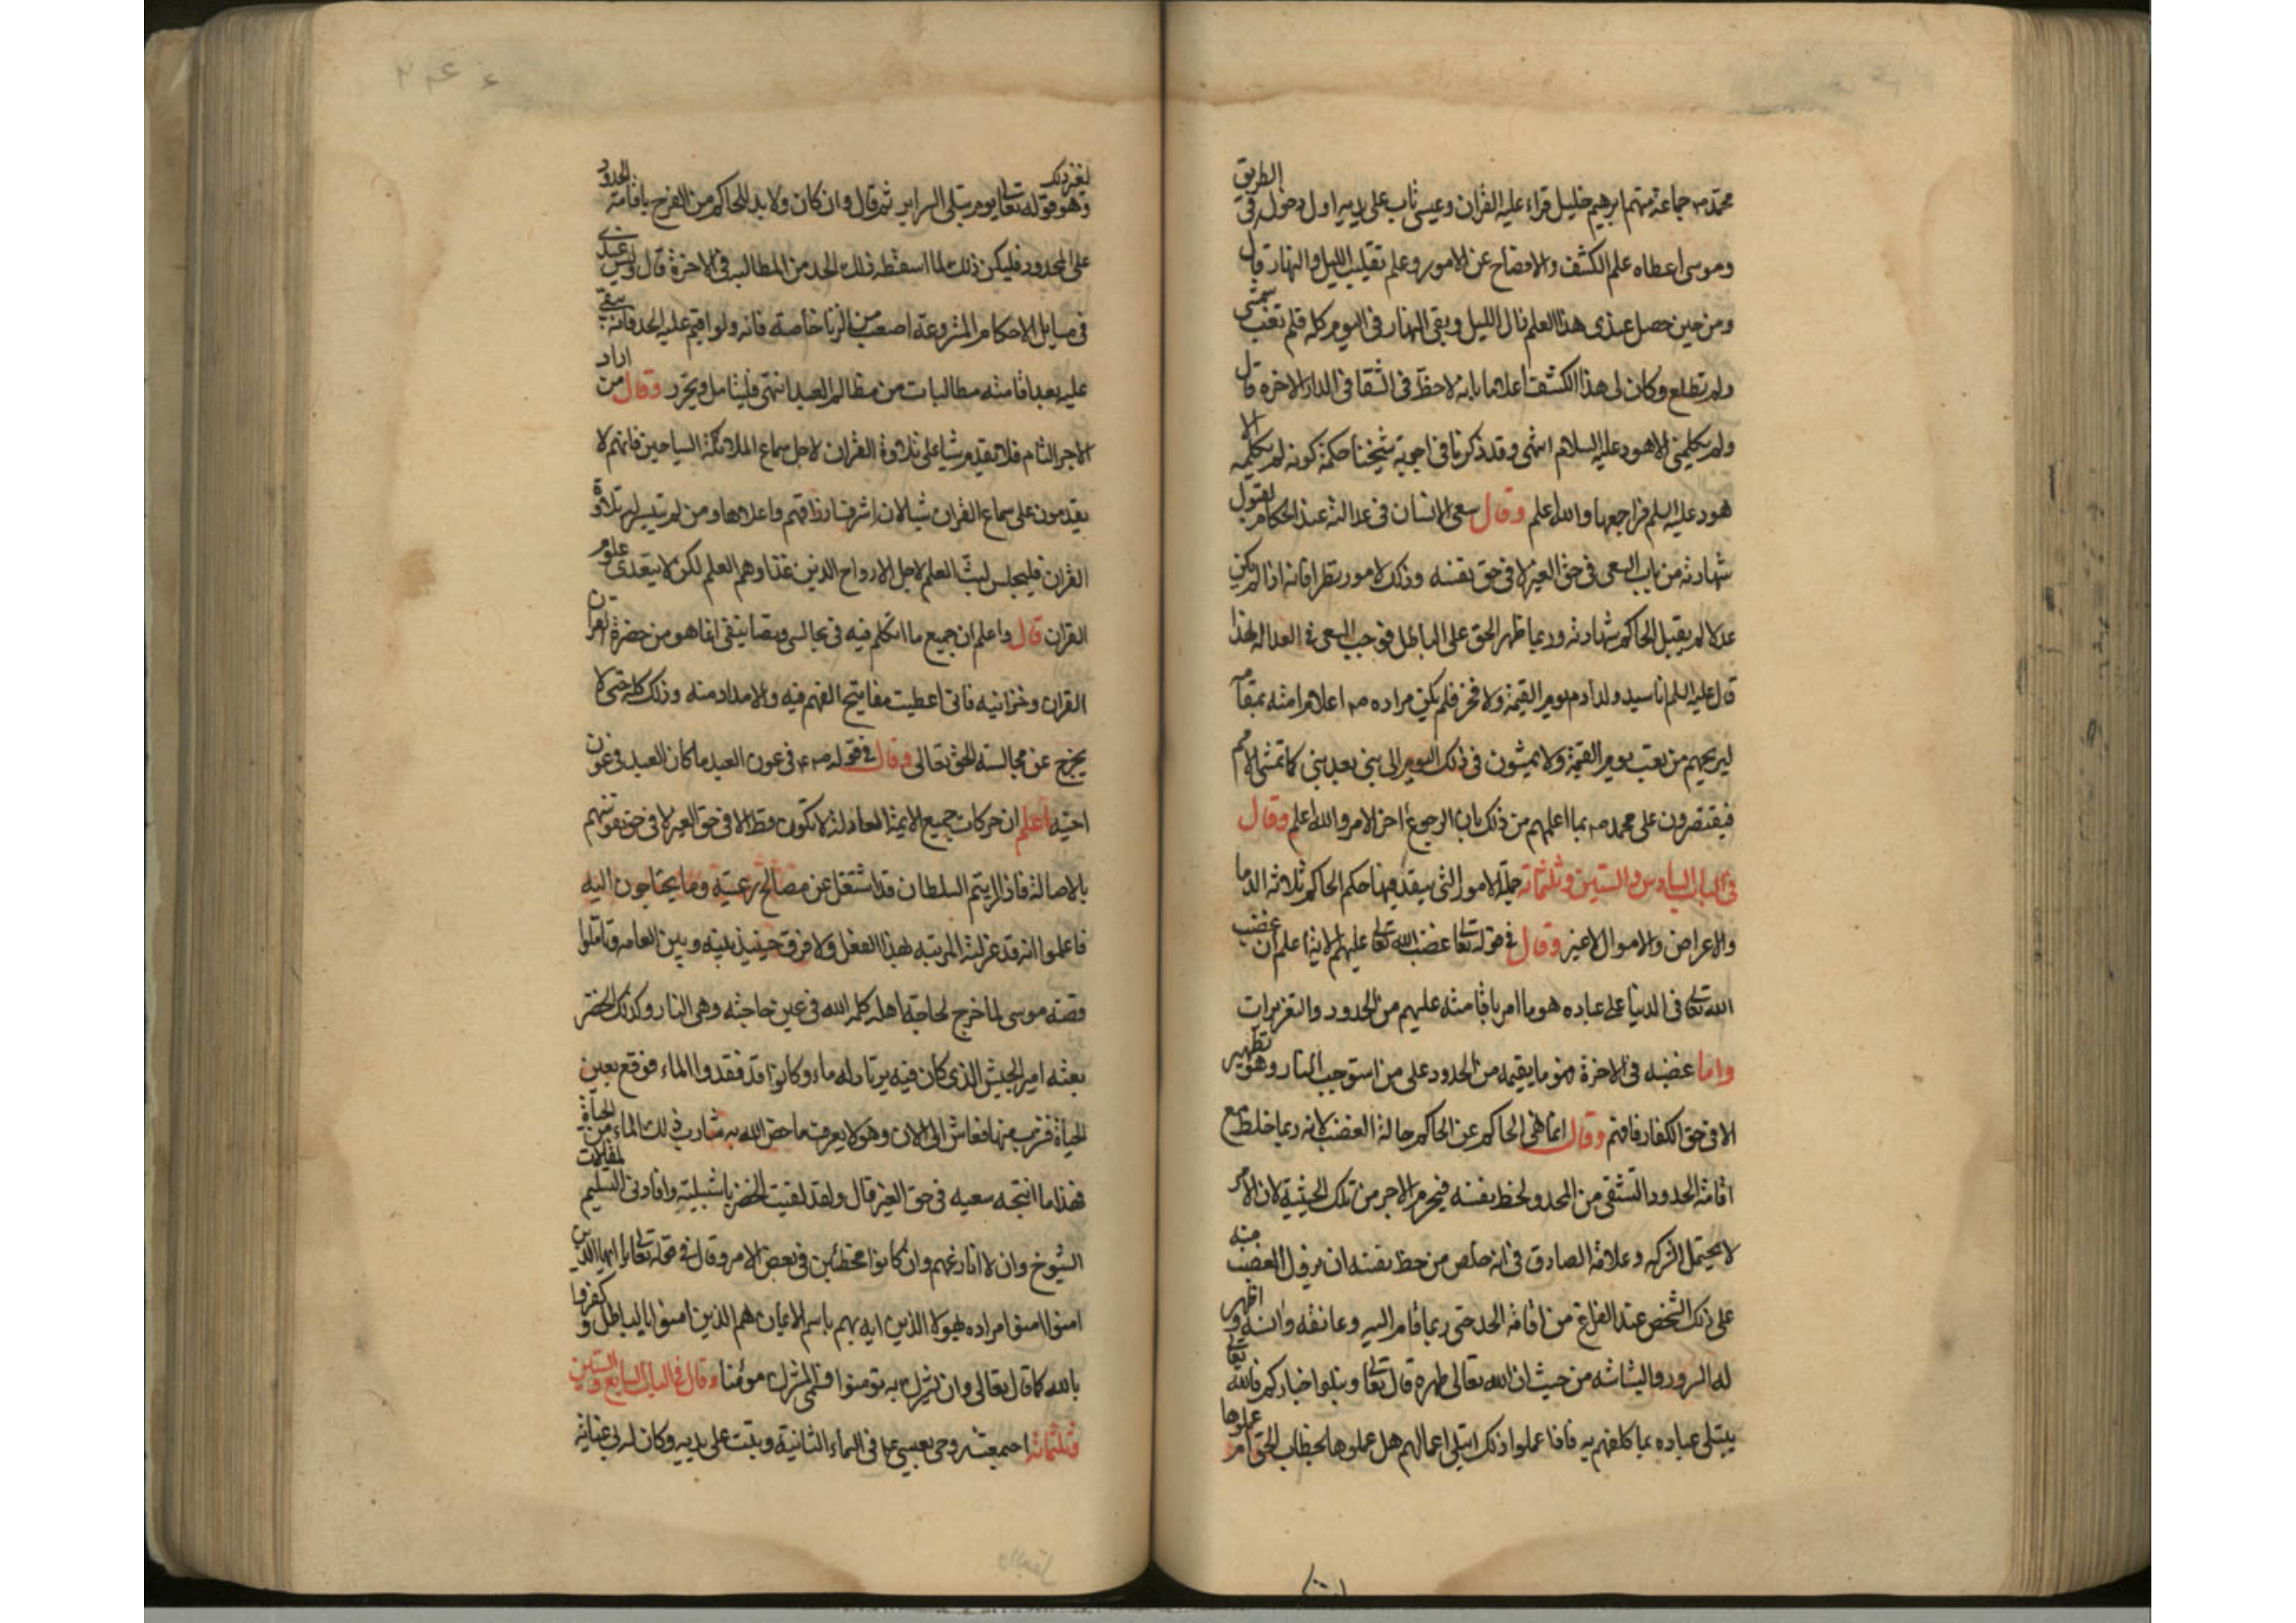 محمد صم جماعة منهم ابرهيم خليل قراء عليه القران وعيسى تاب على يديه اول دخوله في الطريق
وموسى اعطاه علم الكشف والافصاح عن الامور وعلم تقليب الليل والنهار قال
ومن حين حصل عندى هذا العلم زال الليل وبقى النهار فى اليوم كله فلم تغب شمسى
ولم تطلع وكان لى هذا الكشف اعلاما بانه لاحظ فى الشقا فى الدار الاخره قال
ولم يكلمنى الا هود عليه السلام انتهى وقد ذكرنا فى اجوبة شيخنا حكمة كونه لم يكلمه الا
هود عليه السلم فراجعها والله اعلم وقال سعى الانسان فى عدالته عند الحكام لقبول
شهادته من باب السعى فى حق الغير لا فى حق نفسه وذلك لامور تطرا فانه اذا لم يكن
عدلا لم يقبل الحاكم شهادته وربما ظهر الحق على الباطل فوجب السعى فى العدالة لهذا
قال عليه السلم انا سيد ولد ادم يوم القيمة ولا فخر فلم يكن مراده صم اعلام امته بمقامه
ليريحهم من تعب يوم القيمة ولا يمشون فى ذلك اليوم الى نبى بعد نبى كما تمشى الامم
فيقتصرون على محمد صم بما اعلمهم من ذلك بان الرجوع اخر الامر والله اعلم وقال
فى الباب السادس والستين وثلثمائة جملة الامور التى ينفذ فيها حكم الحاكم ثلاثة الدما
والاعراض والاموال لا غير وقال فى قوله تعالى غضب الله تعالى عليهم الاية اعلم ان غضب
الله تعالى فى الدنيا على عباده هو ما امر باقامته عليهم من الحدود والتعزيرات
واما غضبه فى الاخرة فهو ما يقيمه من الحدود على من استوجب النار وهو تطهير
الا فى حق الكفار فافهم وقال انما نهى الحاكم عن الحكم حالة الغضب لانه ربما خلط مع
اقامة الحدود التشفى من المحدود لحظ نفسه فيحرم الاجر من تلك الحيثية لان الامر
لا يحتمل الشركه وعلامة الصادق فى انه خلص من حظ نفسه ان يزول الغضب منه
على ذلك الشخص عند الفراغ من اقامة الحد حتى ربما قام اليه وعانقه وانسه واظهر
له السرور والبشاشه من حيث ان الله تعالى طهره قال تعالى ونبلوا اخباركم فالله تعالى
يبتلى عباده بما كلفهم به فاذا عملوا ذلك ابتلى اعمالهم هل عملوها لخطاب الحق ام عملوها
لغير ذلك
وهو قوله تعالى يوم تبلى السراير ثم قال وان كان ولا بد للحاكم من الفرح باقامة الحدود
على المحدود فليكن ذلك لما اسقطه ذلك الحد من المطالبه فى الاخرة قال وليس عندى
فى مسايل الاحكام المشروعة اصعب من الزنا خاصة فانه ولو اقيم عليه الحد فانه يبقى
عليه بعد اقامته مطالبات من مظالم العبد انتهى فليتامل ويحرر وقال من اراد
الاجر التام فلا يقدم شيا على تلاوة القران لاجل سماع الملائكة السياحين فانهم لا
يقدمون على سماع القران شيا لان اشرف ارزاقهم واعلاها ومن لم تتيسر له تلاوة
القران فليجلس لبث العلم لاجل الارواح الذين غذاوهم العلم لكن لا يتعدى علوم
القران قال واعلم ان جميع ما اتكلم فيه فى مجالسى وتصانيفى انما هو من حضرة القران
القران وخزانيه فانى اعطيت مفاتيح الفهم فيه والامداد منه وذلك كله حتى لا
يخرج عن مجالسة الحق تعالى وقال فى قوله صم فى عون العبد ما كان العبد فى عون
اخيه اعلم ان حركات جميع الايمة العادلة لا تكون قط الا فى حق الغير لا فى حق نفوسهم
بالاصالة فاذا رايتم السلطان قد اشتغل عن مصالح رعيته وما يحتاجون اليه
فاعلموا انه قد عزلته المرتبه بهذا الفعل ولا فرق حينيذ بينه وبين العامه وتاملوا
قصة موسى لما خرج لحاجة اهله كلمه الله فى عين حاجته وهى النار وكذلك الخضر
بعثه امير الجيش الذى كان فيه يرتاد له ماء وكانوا قد فقدوا الماء فوقع بعين
الحياة فشرب منها فعاش الى الان وهو لا يعرف ما خص الله به شارب ذلك الماء من الحياة
فهذا ما انتجه سعيه فى حق الغير قال ولقد لقيت الخضر باشبيلية وافادنى التسليم لمقالات
الشيوخ وان لا انازعهم وان كانوا مخطئين فى بعض الامر وقال فى قوله تعالى يا ايها الذين
امنوا امنوا مراده بهولا الذين ايه بهم باسم الايمان هم الذين امنوا بالباطل وكفروا
بالله كما قال تعالى وان يشرك به تومنوا فسمى المشرك مومنا وقال فى الباب السابع والستين
وثلثمائة اجتمعت روحى بعيسى عم فى السماء الثانية وتبت على يديه وكان له بى عناية